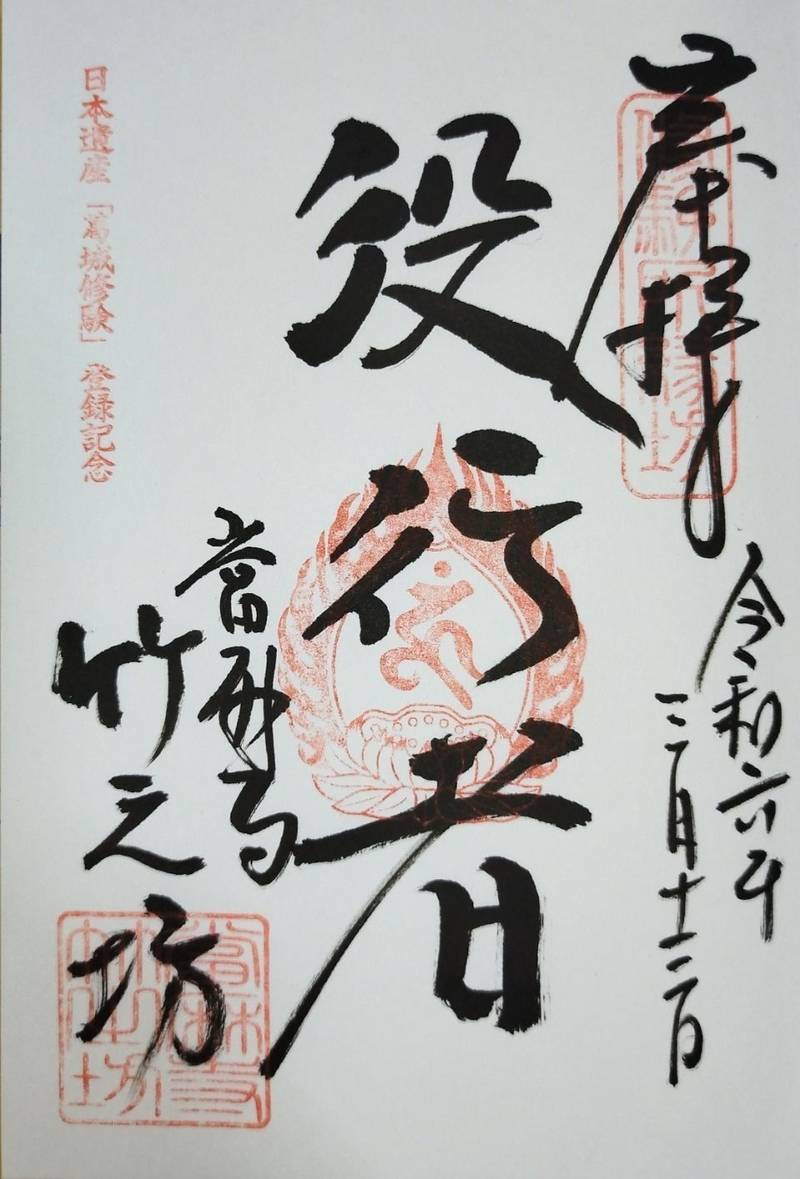 奉拝
令和六年
三月十二日
役行者
當麻寺
竹之坊
日本遺産「葛城修験」登録記念
當麻寺
竹之坊